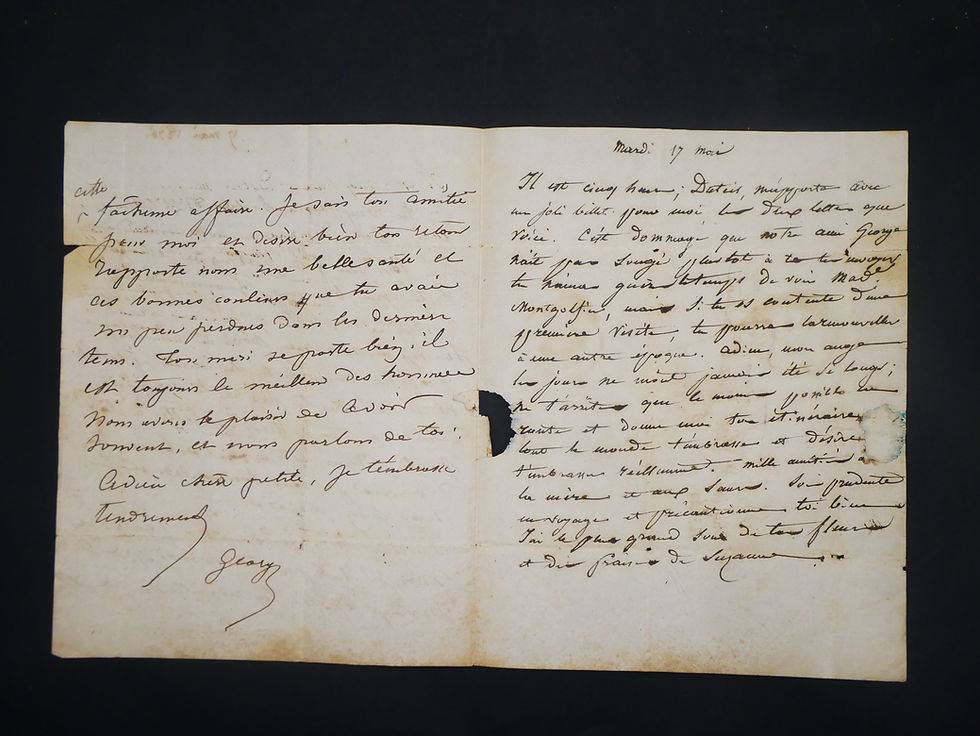 cette
fâcheuse affaire. Je sais ton amitié
pour moi et désire bien ton retour
rapporte nous une belle santé et
ces bonnes couleurs que tu avais
un peu perdues dans les derniers
tems. Ton mari se porte bien, il
est toujours le meilleur des hommes
nous avons le plaisir de
souvent, et nous parlons de toi.
Adieu chère petite, je t'embrasse
tendrement
George
Mardi 17 mai
Il est cinq heures; m'apporte avec
un joli billet pour moi, les deux lettres que
voici. C'est dommage que notre ami George
n'ait pas songé plustot à te
tu n'auras de voir Made
Montgolfier, mais si tu es contente d'une
première visite, tu pourras la renouveller
à une autre époque. adieu, mon ange
les jours ne m'ont jamais été si longs;
ne t'arrête que le moins possible en
route et donne moi ton itinéraire
tout le monde t'embrasse et désire
t'embrasser réellement. mille amitiés à
la mère et aux sœurs. Sois prudente
en voyage et précautionne toi bien
J'ai le plus grand soin de tes fleurs
et des fraises de Suzanne